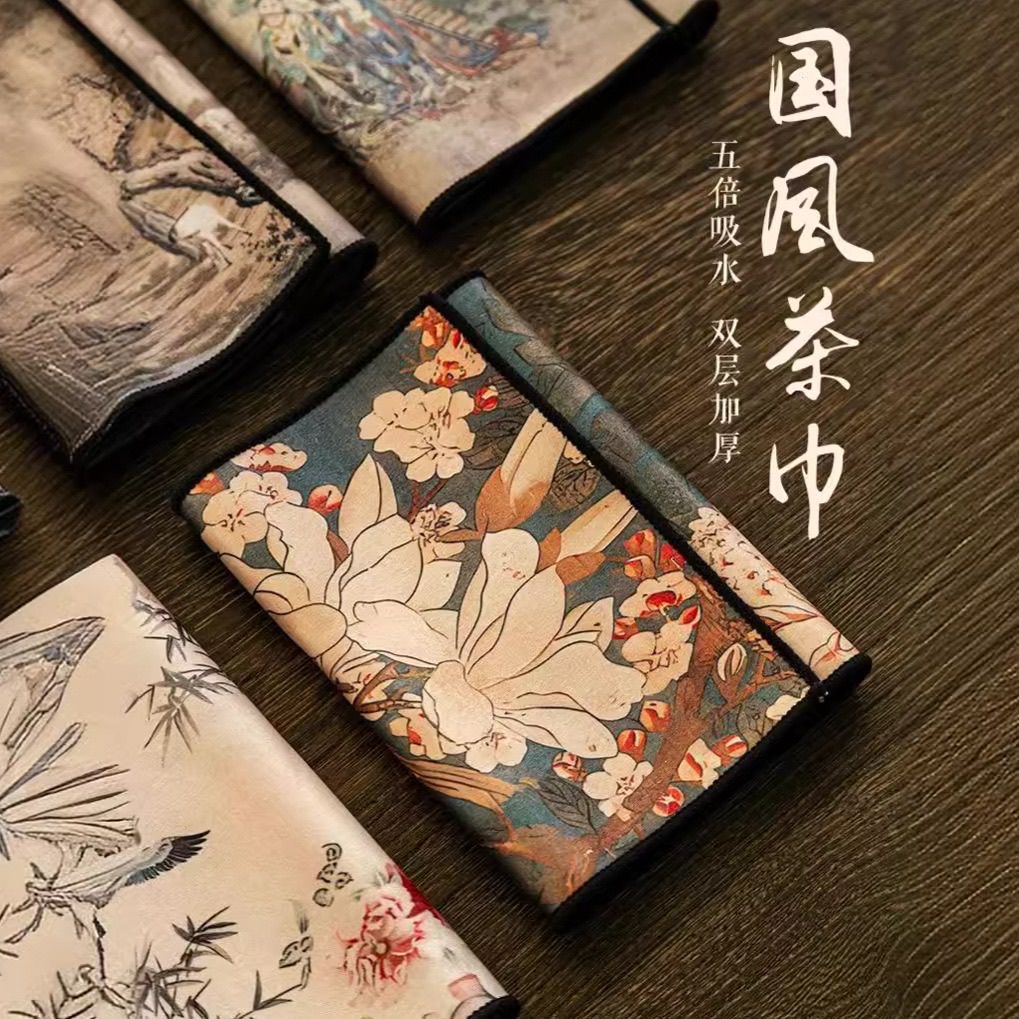 国风茶巾
五倍吸水 双层加厚